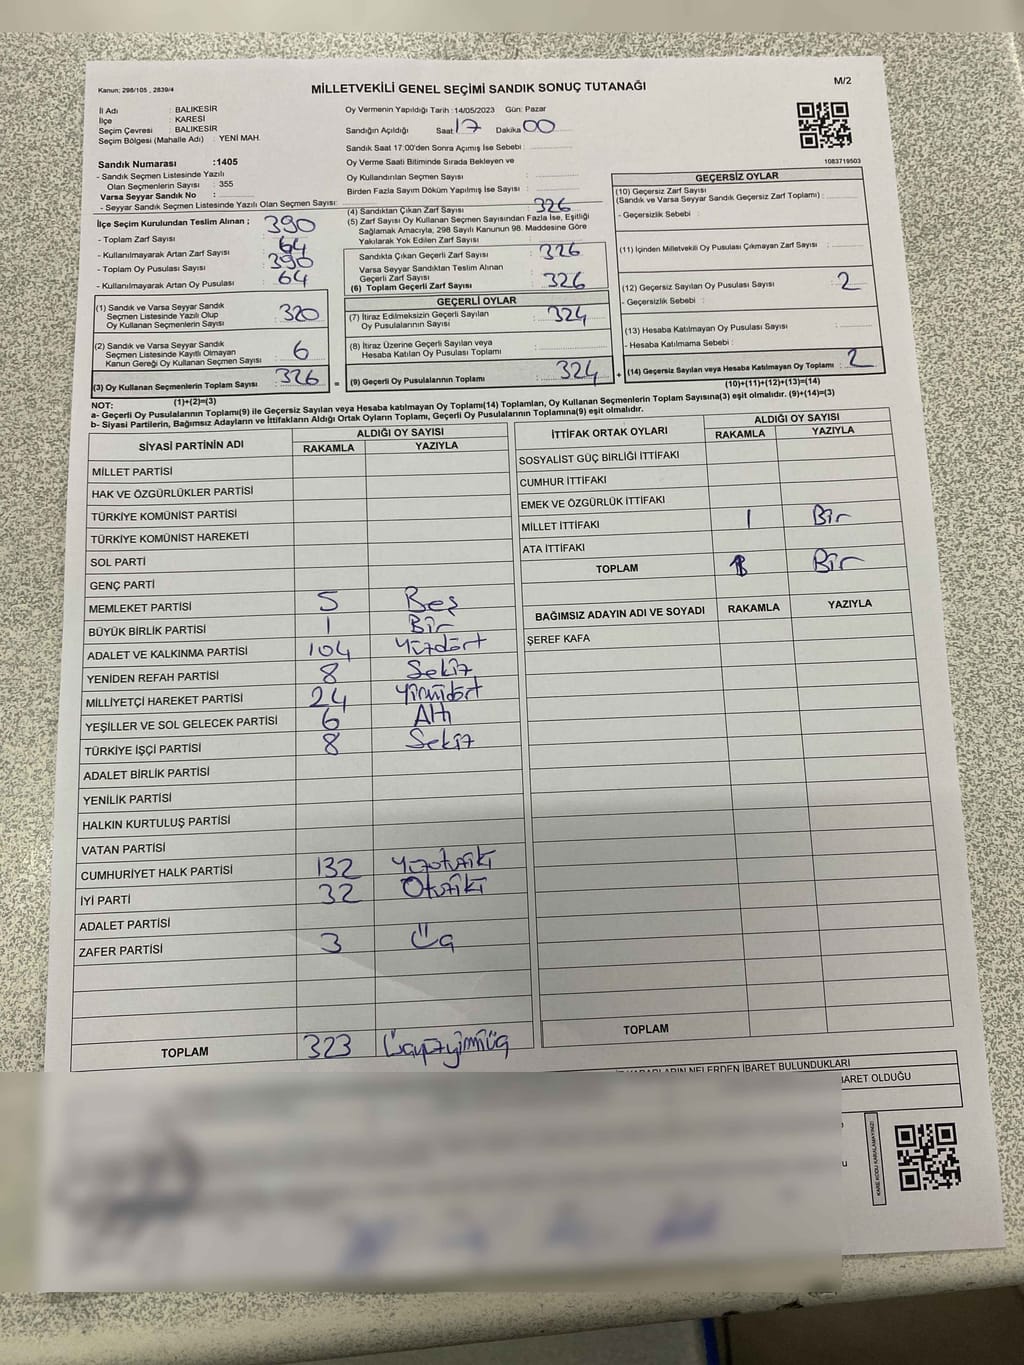 Kanun: 298/105 , 2839/4
MİLLETVEKİLİ GENEL SEÇİMİ SANDIK SONUÇ TUTANAĞI
M/2
İl Adı : BALIKESİR
İlçe : KARESİ
Seçim Çevresi : BALIKESİR
Seçim Bölgesi (Mahalle Adı) : YENİ MAH.
Sandık Numarası :1405
- Sandık Seçmen Listesinde Yazılı
Olan Seçmenlerin Sayısı : 355
Varsa Seyyar Sandık No :
- Seyyar Sandık Seçmen Listesinde Yazılı Olan Seçmen Sayısı:
Oy Vermenin Yapıldığı Tarih :14/05/2023 Gün: Pazar
Sandığın Açıldığı Saat 17 Dakika 00
Sandık Saat 17:00'den Sonra Açılmış İse Sebebi :
Oy Verme Saati Bitiminde Sırada Bekleyen ve
Oy Kullandırılan Seçmen Sayısı :
Birden Fazla Sayım Döküm Yapılmış İse Sayısı :
1083719503
İlçe Seçim Kurulundan Teslim Alınan ;
- Toplam Zarf Sayısı : 390
- Kullanılmayarak Artan Zarf Sayısı : 64
- Toplam Oy Pusulası Sayısı : 390
- Kullanılmayarak Artan Oy Pusulası : 64
(1) Sandık ve Varsa Seyyar Sandık
Seçmen Listesinde Yazılı Olup
Oy Kullanan Seçmenlerin Sayısı : 320
(2) Sandık ve Varsa Seyyar Sandık
Seçmen Listesinde Kayıtlı Olmayan
Kanun Gereği Oy Kullanan Seçmen Sayısı : 6
(3) Oy Kullanan Seçmenlerin Toplam Sayısı : 326
(1)+(2)=(3)
(4) Sandıktan Çıkan Zarf Sayısı : 326
(5) Zarf Sayısı Oy Kullanan Seçmen Sayısından Fazla İse, Eşitliği
Sağlamak Amacıyla, 298 Sayılı Kanunun 98. Maddesine Göre
Yakılarak Yok Edilen Zarf Sayısı :
Sandıkta Çıkan Geçerli Zarf Sayısı : 326
Varsa Seyyar Sandıktan Teslim Alınan
Geçerli Zarf Sayısı :
(6) Toplam Geçerli Zarf Sayısı : 326
GEÇERLİ OYLAR
(7) İtiraz Edilmeksizin Geçerli Sayılan
Oy Pusulalarının Sayısı : 324
(8) İtiraz Üzerine Geçerli Sayılan veya
Hesaba Katılan Oy Pusulası Toplamı :
= (9) Geçerli Oy Pusulalarının Toplamı : 324
GEÇERSİZ OYLAR
(10) Geçersiz Zarf Sayısı
(Sandık ve Varsa Seyyar Sandık Geçersiz Zarf Toplamı) :
- Geçersizlik Sebebi :
(11) İçinden Milletvekili Oy Pusulası Çıkmayan Zarf Sayısı :
(12) Geçersiz Sayılan Oy Pusulası Sayısı : 2
- Geçersizlik Sebebi :
(13) Hesaba Katılmayan Oy Pusulası Sayısı :
- Hesaba Katılmama Sebebi :
+ (14) Geçersiz Sayılan veya Hesaba Katılmayan Oy Toplamı : 2
(10)+(11)+(12)+(13)=(14)
NOT:
a- Geçerli Oy Pusulalarının Toplamı(9) ile Geçersiz Sayılan veya Hesaba katılmayan Oy Toplamı(14) Toplamları, Oy Kullanan Seçmenlerin Toplam Sayısına(3) eşit olmalıdır. (9)+(14)=(3)
b- Siyasi Partilerin, Bağımsız Adayların ve İttifakların Aldığı Ortak Oyların Toplamı, Geçerli Oy Pusulalarının Toplamına(9) eşit olmalıdır.
SİYASİ PARTİNİN ADI ALDIĞI OY SAYISI
RAKAMLA YAZIYLA
MİLLET PARTİSİ
HAK VE ÖZGÜRLÜKLER PARTİSİ
TÜRKİYE KOMÜNİST PARTİSİ
TÜRKİYE KOMÜNİST HAREKETİ
SOL PARTİ
GENÇ PARTİ
MEMLEKET PARTİSİ 5 Beş
BÜYÜK BİRLİK PARTİSİ 1 Bir
ADALET VE KALKINMA PARTİSİ 104 Yüzdört
YENİDEN REFAH PARTİSİ 8 Sekiz
MİLLİYETÇİ HAREKET PARTİSİ 24 Yirmidört
YEŞİLLER VE SOL GELECEK PARTİSİ 6 Altı
TÜRKİYE İŞÇİ PARTİSİ 8 Sekiz
ADALET BİRLİK PARTİSİ
YENİLİK PARTİSİ
HALKIN KURTULUŞ PARTİSİ
VATAN PARTİSİ
CUMHURİYET HALK PARTİSİ 132 Yüzotuziki
İYİ PARTİ 32 Otuziki
ADALET PARTİSİ
ZAFER PARTİSİ 3 Üç
TOPLAM 323 Üçyüzyirmiüç
İTTİFAK ORTAK OYLARI ALDIĞI OY SAYISI
RAKAMLA YAZIYLA
SOSYALİST GÜÇ BİRLİĞİ İTTİFAKI
CUMHUR İTTİFAKI
EMEK VE ÖZGÜRLÜK İTTİFAKI
MİLLET İTTİFAKI 1 Bir
ATA İTTİFAKI
TOPLAM 1 Bir
BAĞIMSIZ ADAYIN ADI VE SOYADI RAKAMLA YAZIYLA
ŞEREF KAFA
TOPLAM
KARARLARIN NELERDEN İBARET BULUNDUKLARI
İBARET OLDUĞU
KARE KODU KARALAMAYINIZ!